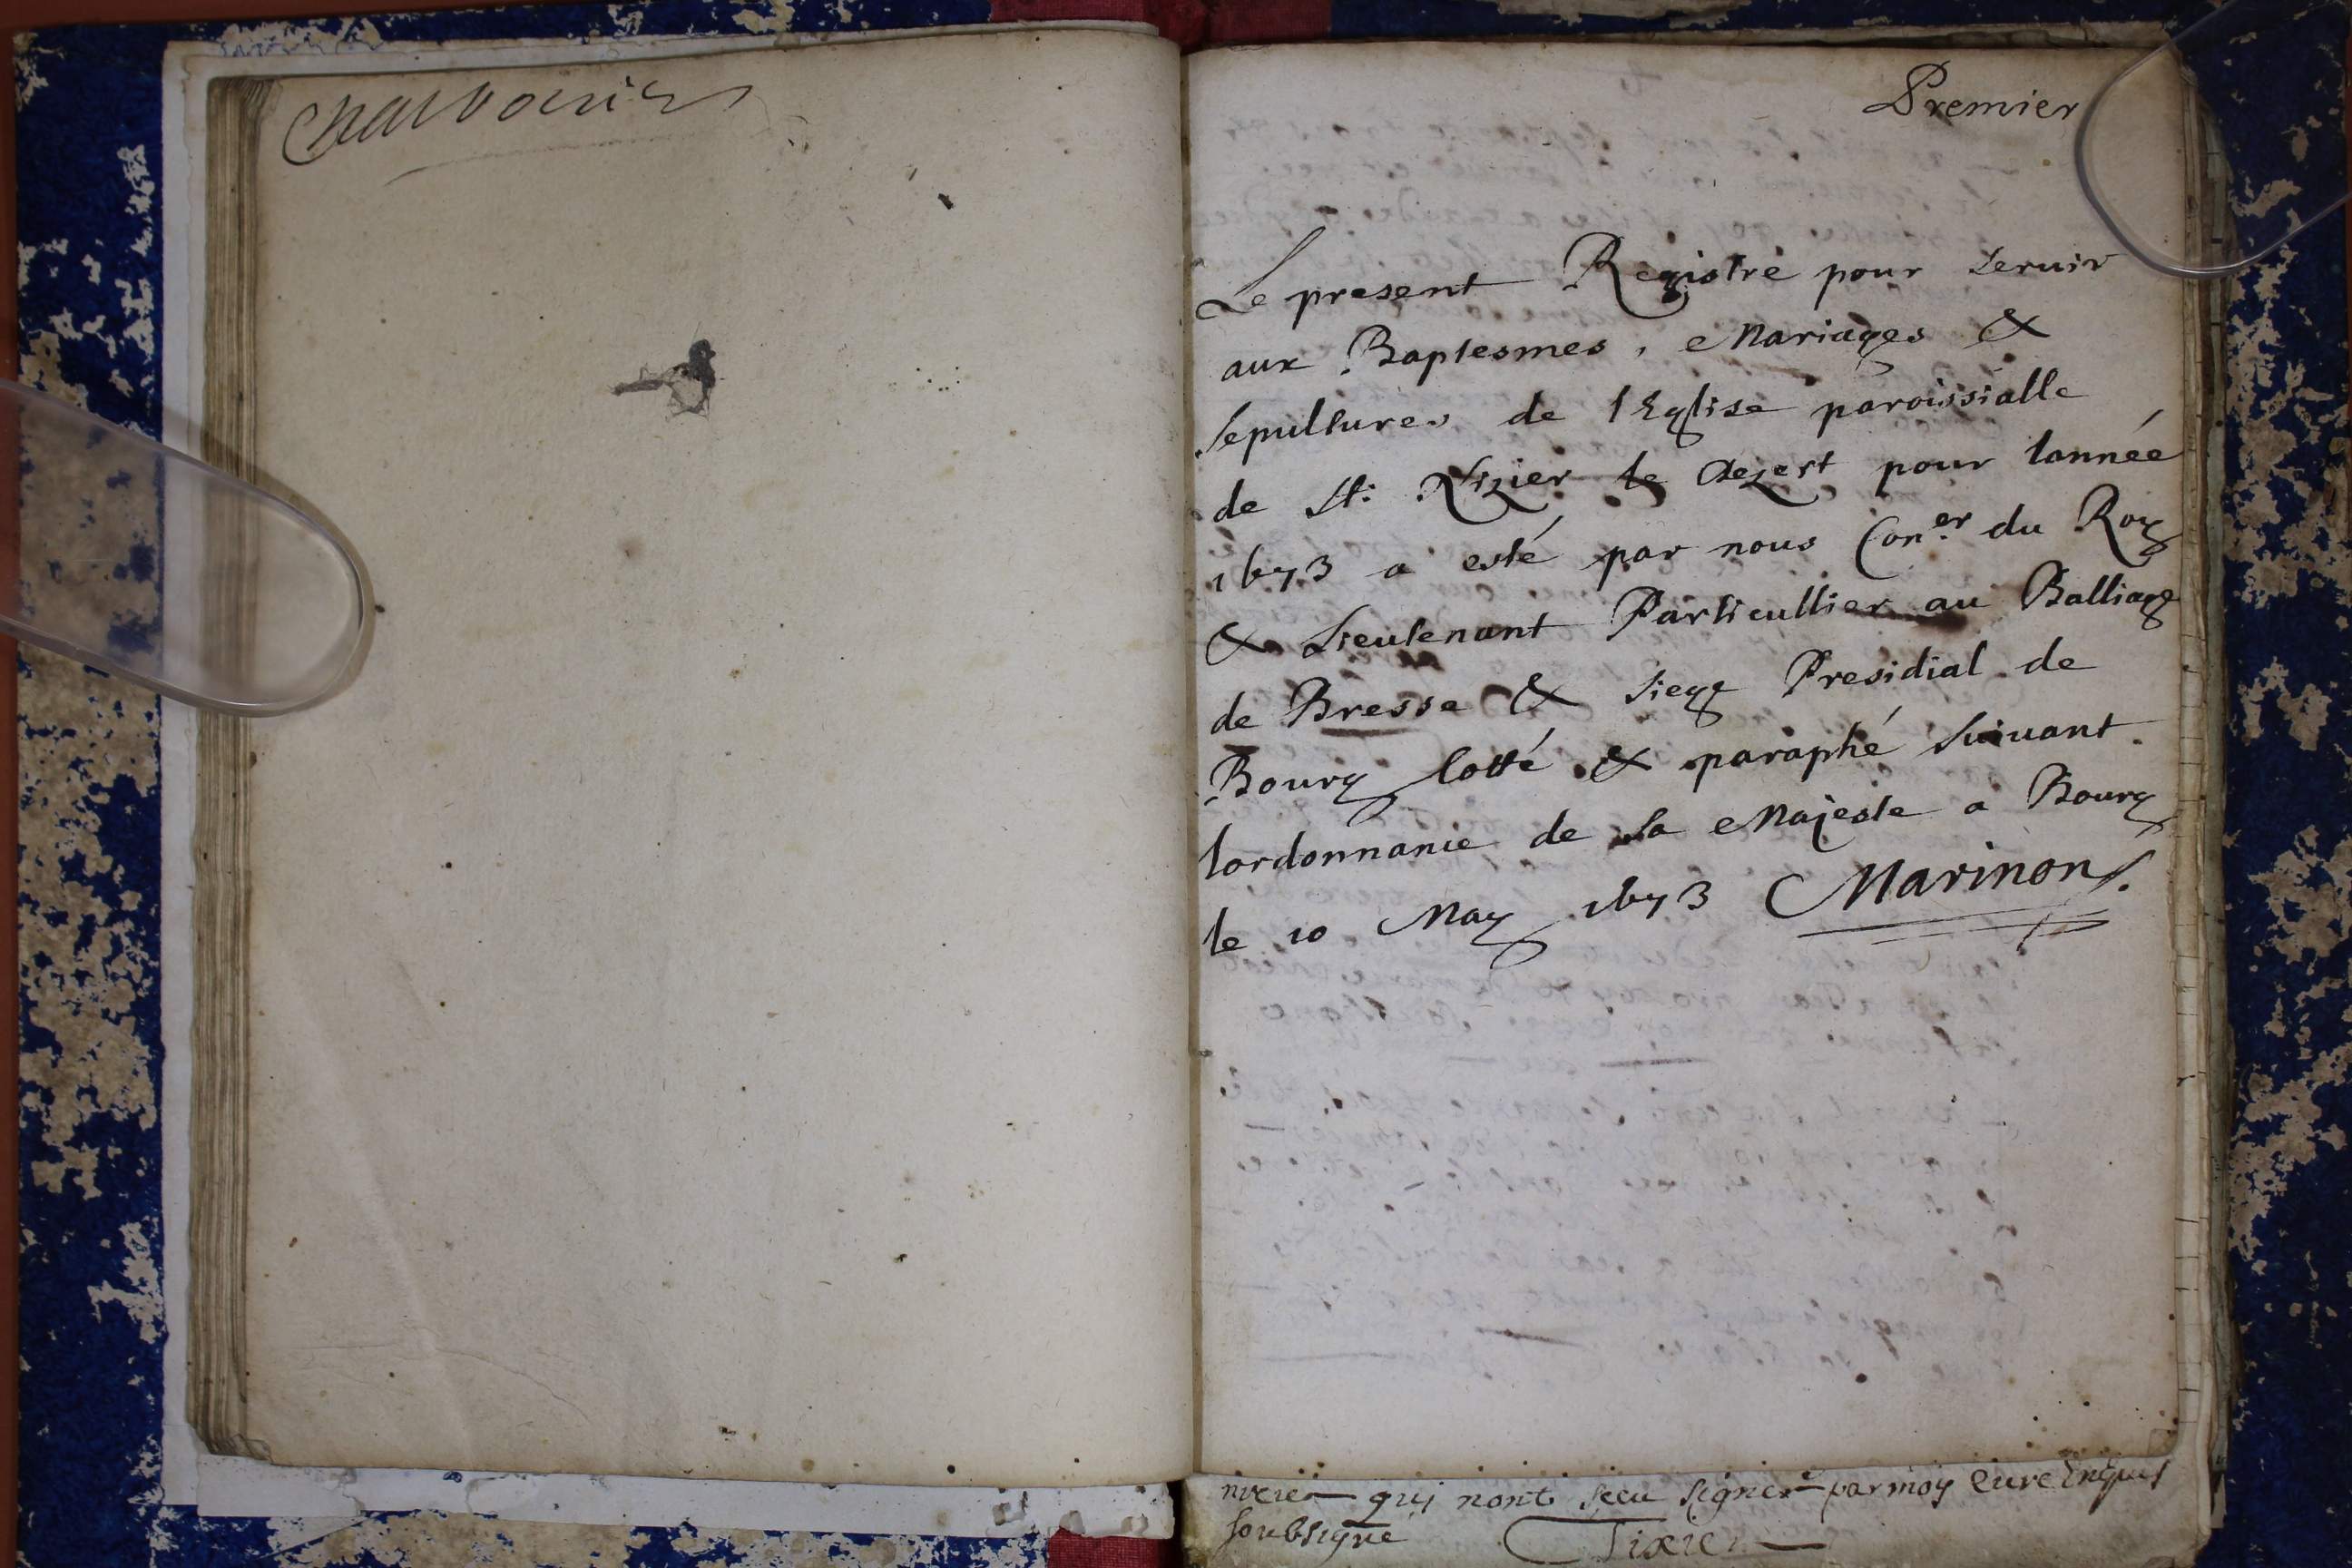 Premier
Le present Registre pour seruir
aux Baptesmes, Mariages &
Sepultures de lEglise paroissialle
de St. Nizier le dezert pour lannéé
1673 a esté par nous Con.er du Roy
& Lieutenant Particullier au Balliage
de Bresse & siege Presidial de
Bourg Cotté & paraphé Suiuant
lordonnance de Sa Majeste a Bourg
le 10 May 1673 Marinon
qui nont sceu signer par moy Cure
soubsigne Tixier